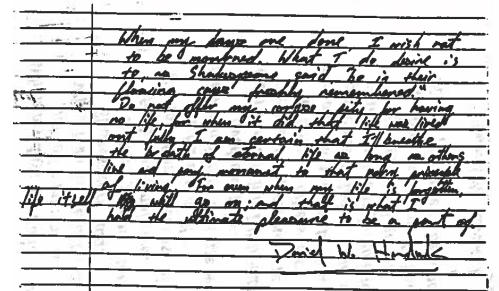 When my days are done, I wish not
to be mourned. What I do desire is
to, as Shakespeare said, "be in their
flowing cups freshly remembered."
Do not offer my corpse pity for having
no life, for when it did, that life was lived
out fully. I am certain that I'll breathe
the breath of eternal life as long as others
live and pay to that very principle
of living. For even when my life is forgotten,
life itself will go on; and that is what I
had the ultimate pleasure to be a part of.
Daniel W.